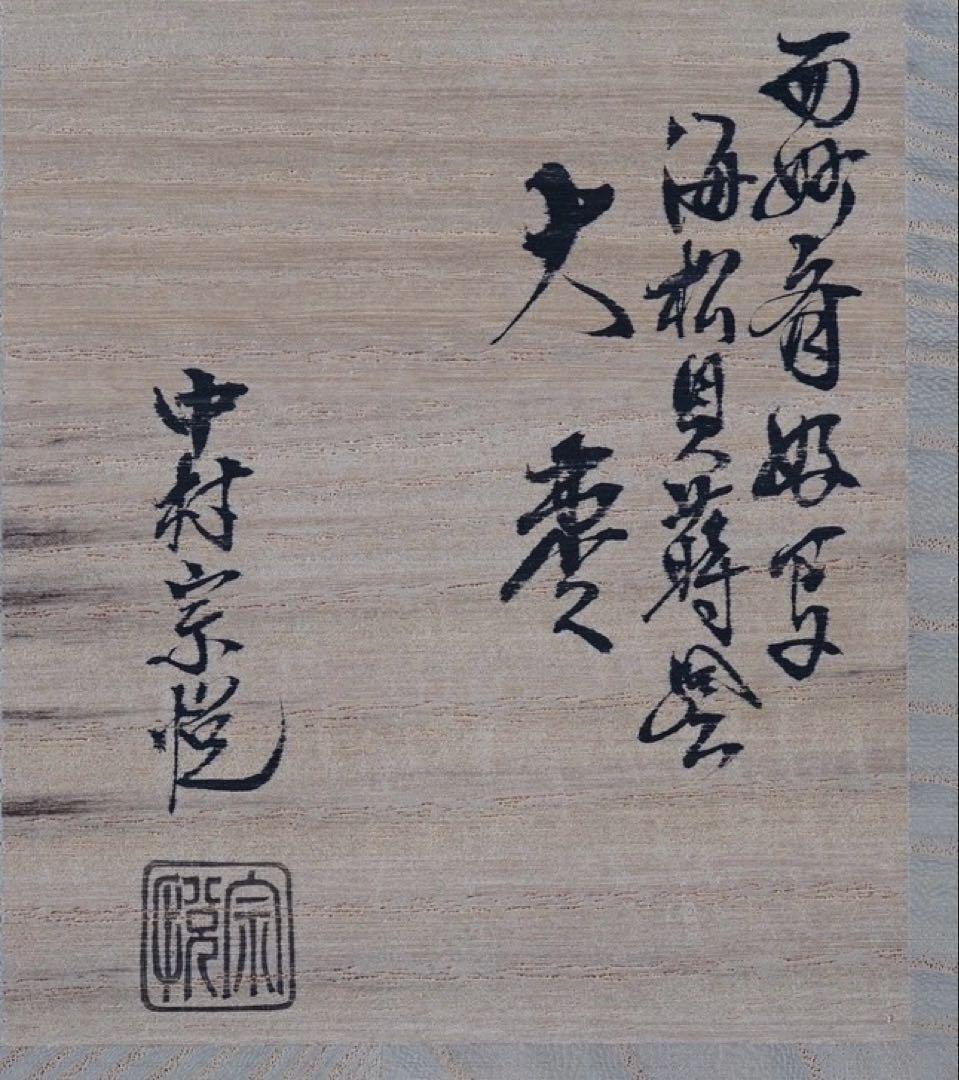 而妙斎好写
海松貝蒔絵
大棗
中村宗悦
宗悦